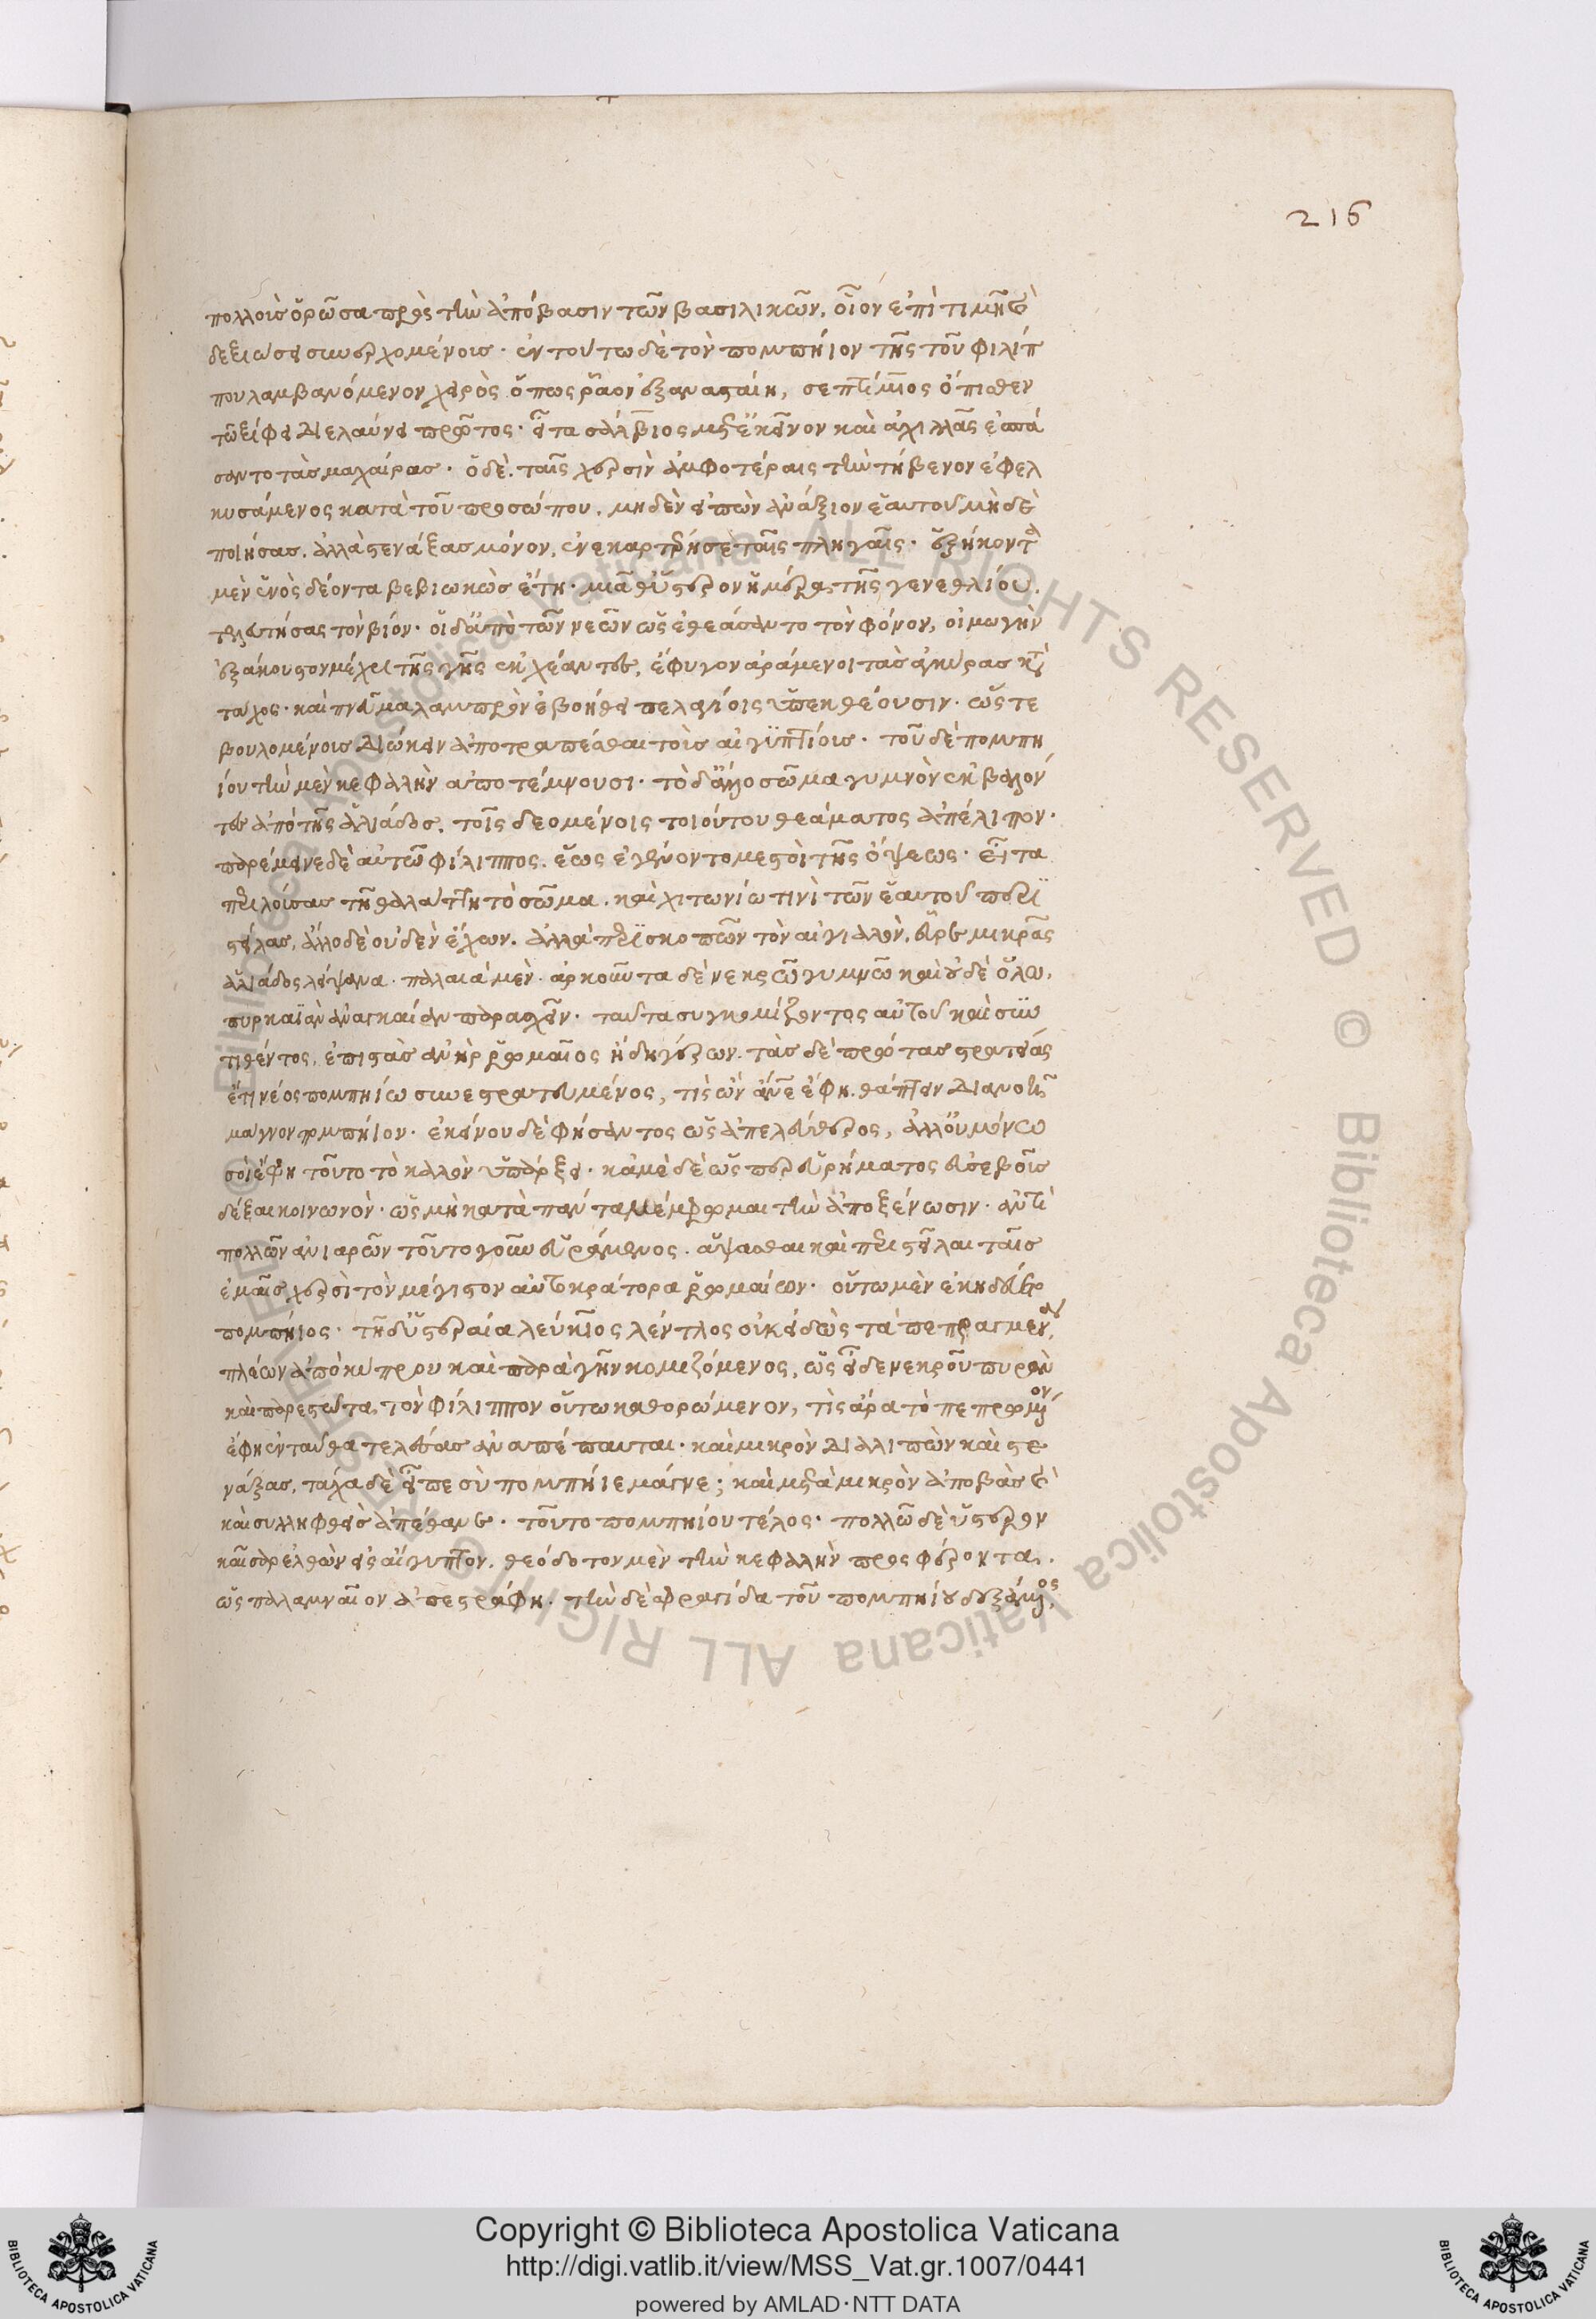 216
πολλοὺς ὁρῶσα πρὸς τὴν ἀπόβασιν τῶν βασιλικῶν, οἷον ἐπὶ τιμῆ καὶ
δεξιώσει συνερχομένους· ἐν τούτω δὲ τὸν πομπήιον τῆς τοῦ φιλίπ
που λαμβανόμενον χειρὸς ὅπως ῥᾶον ἐξανασταίη, σεπτίμιος ὄπισθεν
τῶ ξίφει διελαύνει πρῶτος· εἶτα σάλβιος μετ' ἐκεῖνον καὶ ἀχιλλᾶς ἐσπά
σαντο τὰς μαχαίρας· ὁ δὲ ταῖς χερσὶν ἀμφοτέραις τὴν τήβεννον ἐφελ
κυσάμενος κατὰ τοῦ προσώπου, μηδὲν εἰπὼν ἀνάξιον ἑαυτοῦ μὴ δὲ
ποιήσας, ἀλλὰ στενάξας μόνον, ἐνεκαρτέρησε ταῖς πληγαῖς· ἑξήκοντα
μὲν ἑνὸς δέοντα βεβιωκὼς ἔτη· μιᾶ δ' ὕστερον ἡμέρα τῆς γενεθλίου,
τελευτήσας τὸν βίον· οἱ δ' ἀπὸ τῶν νεῶν ὡς ἐθεάσαντο τὸν φόνον, οἰμωγὴν
ἐξάκουστον μέχρι τῆς γῆς ἐκχέαντες, ἔφυγον ἀράμενοι τὰς ἀγκύρας κατὰ
τάχος· καὶ πνεῦμα λαμπρὸν ἐβοήθει πελαγίοις ὑπεκθέουσιν· ὥστε
βουλομένους διώκειν ἀποτραπέσθαι τοὺς αἰγυπτίους· τοῦ δὲ πομπη
ίου τὴν μὲν κεφαλὴν ἀποτέμνουσι· τὸ δ' ἄλλο σῶμα γυμνὸν ἐκβαλόν
τες ἀπὸ τῆς ἁλιάδος, τοῖς δεομένοις τοιούτου θεάματος ἀπέλιπον·
παρέμεινε δὲ αὐτῶ φίλιππος, ἕως ἐγένοντο μεστοὶ τῆς ὄψεως· εἶτα
περιλούσας τῆ θαλάττη τὸ σῶμα, καὶ χιτωνίω τινὶ τῶν ἑαυτοῦ περι
στείλας, ἄλλο δὲ οὐδὲν ἔχων, ἀλλὰ περισκοπῶν τὸν αἰγιαλὸν, εὗρε μικρᾶς
ἁλιάδος λείψανα· παλαιὰ μὲν· ἀρκοῦντα δὲ νεκρῶ γυμνῶ καὶ οὐδὲ ὅλω,
πυρκαϊὰν ἀναγκαίαν παρασχεῖν· ταῦτα συγκομίζοντος αὐτοῦ καὶ συν
τιθέντος, ἐπιστὰς ἀνὴρ ῥωμαῖος ἤδη γέρων, τὰς δὲ πρώτας στρατείας
ἔτι νέος πομπηίω συνεστρατευμένος, τίς ὢν ἄνθρωπε ἔφη θάπτειν διανοῆ
μάγνον πομπήιον· ἐκείνου δὲ φήσαντος ὡς ἀπελεύθερος, ἀλλ' οὐ μόνω
σοὶ ἔφη τοῦτο τὸ καλὸν ὑπάρξει· κἀμὲ δὲ ὥσπερ εὑρήματος εὐσεβοῦς
δέξαι κοινωνὸν· ὡς μὴ κατὰ πάντα μέμφωμαι τὴν ἀποξένωσιν· ἀντὶ
πολλῶν ἀνιαρῶν τοῦτο γοῦν εὑράμενος, ἅψασθαι καὶ περιστεῖλαι ταῖς
ἐμαῖς χερσὶ τὸν μέγιστον αὐτοκράτορα ῥωμαίων· οὕτω μὲν ἐκηδεύετο
πομπήιος· τῆ δ' ὑστεραία λεύκιος λέντλος οὐκ εἰδὼς τὰ πεπραγμένα,
πλέων ἀπὸ κύπρου καὶ παρὰ γῆν κομιζόμενος, ὡς εἶδε νεκροῦ πυρὰν
καὶ παρεστῶτα τὸν φίλιππον οὔπω καθορώμενον, τίς ἄρα τὸ πεπρωμένον
ἔφη ἐνταῦθα τελέσας ἀναπέπαυται· καὶ μικρὸν διαλιπὼν καὶ στε
νάξας, τάχα δὲ εἶπε σὺ πομπήιε μάγνε; καὶ μετὰ μικρὸν ἀποβὰς
καὶ συλληφθεὶς ἀπέθανε· τοῦτο πομπηίου τέλος· πολλῶ δὲ ὕστερον
καῖσαρ ἐλθὼν εἰς αἴγυπτον, θεόδοτον μὲν τὴν κεφαλὴν προσφέροντα,
ὡς παλαμναῖον ἀπεστράφη· τὴν δὲ σφραγίδα τοῦ πομπηίου δεξάμενος,
Copyright © Biblioteca Apostolica Vaticana
http://digi.vatlib.it/view/MSS_Vat.gr.1007/0441
powered by AMLAD·NTT DATA